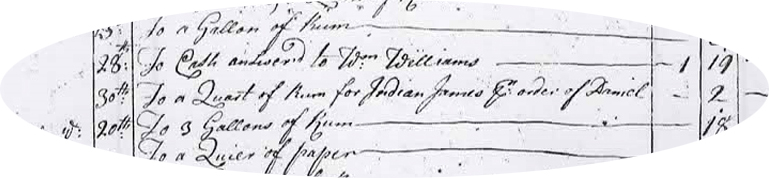 To a Gallon of Rum
28th To Cash answerd to Wm Williams 1 19
30th To a Quart of Rum for Indean James pr order of Daniel - 2
20th To 3 Gallons of Rum 18
To a Quier of paper